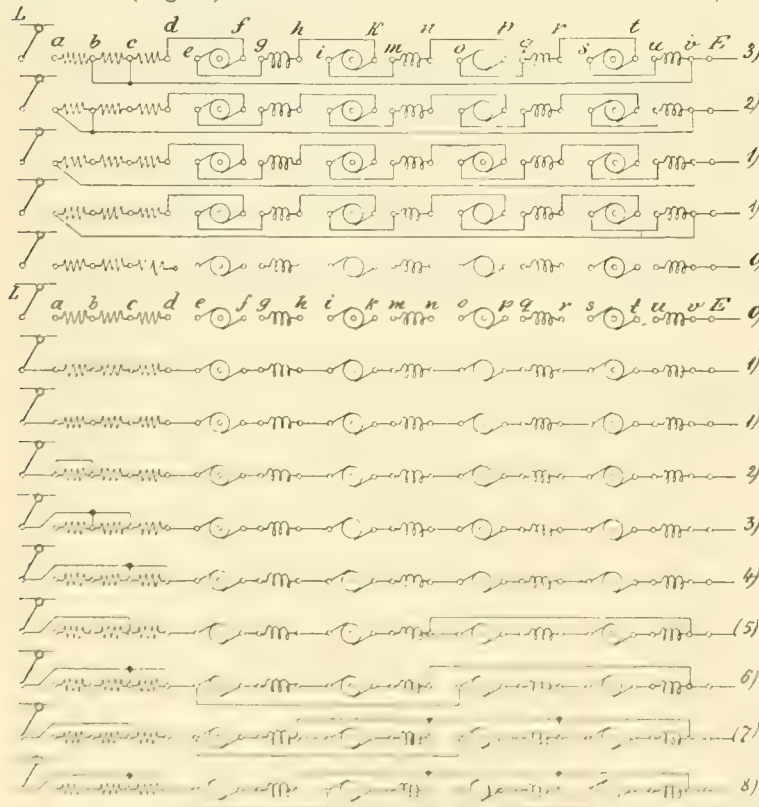 L a b c d e f g h i k m n o p q r s t u v E 3)
2)
1)
1)
0)
L a b c d e f g h i k m n o p q r s t u v E 0)
1)
1)
2)
3)
4)
(5)
6)
(7)
8)